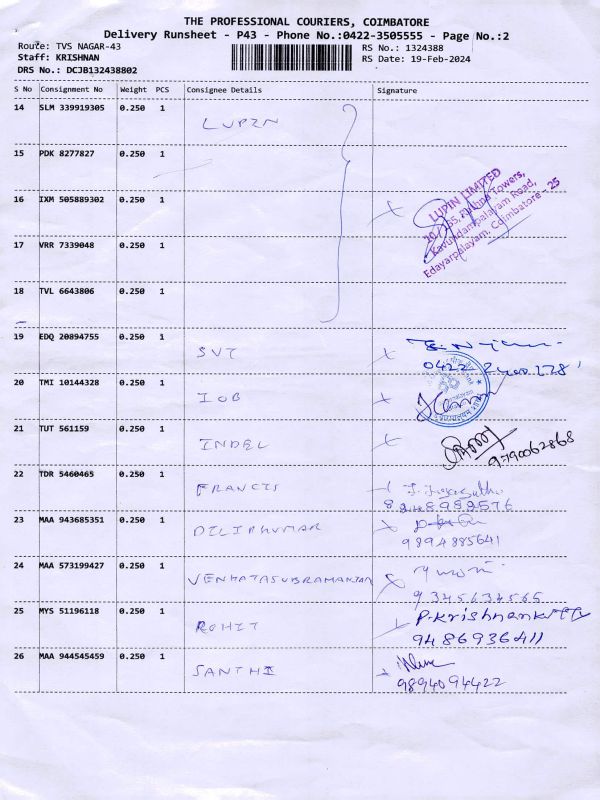 THE PROFESSIONAL COURIERS, COIMBATORE
Delivery Runsheet - P43 - Phone No.:0422-3505555 - Page No.:2
Route: TVS NAGAR-43
RS No.: 1324388
Staff: KRISHNAN
RS Date: 19-Feb-2024
DRS No.: DCJB132438802
S No Consignment No Weight PCS Consignee Details Signature
14 SLM 339919305 0.250 1 LUPIN
15 PDK 8277827 0.250 1
16 IXM 505889302 0.250 1
LUPIN LIMITED
Towers,
Kavundampalayam Road,
Edayarpalayam, Coimbatore - 25
17 VRR 7339048 0.250 1
18 TVL 6643806 0.250 1
19 EDQ 20894755 0.250 1 SVT
0422
20 TMI 10144328 0.250 1 IOB
21 TUT 561159 0.250 1 INDEL
9790062868
22 TDR 5460465 0.250 1 FRANCIS
8248982576
23 MAA 943685351 0.250 1 DILIPKUMAR
9894885641
24 MAA 573199427 0.250 1 VENKATASUBRAMANIAN
9345634565
25 MYS 51196118 0.250 1 ROHIT P.Krishnankutty
9486936411
26 MAA 944545459 0.250 1 SANTHI
9894094422